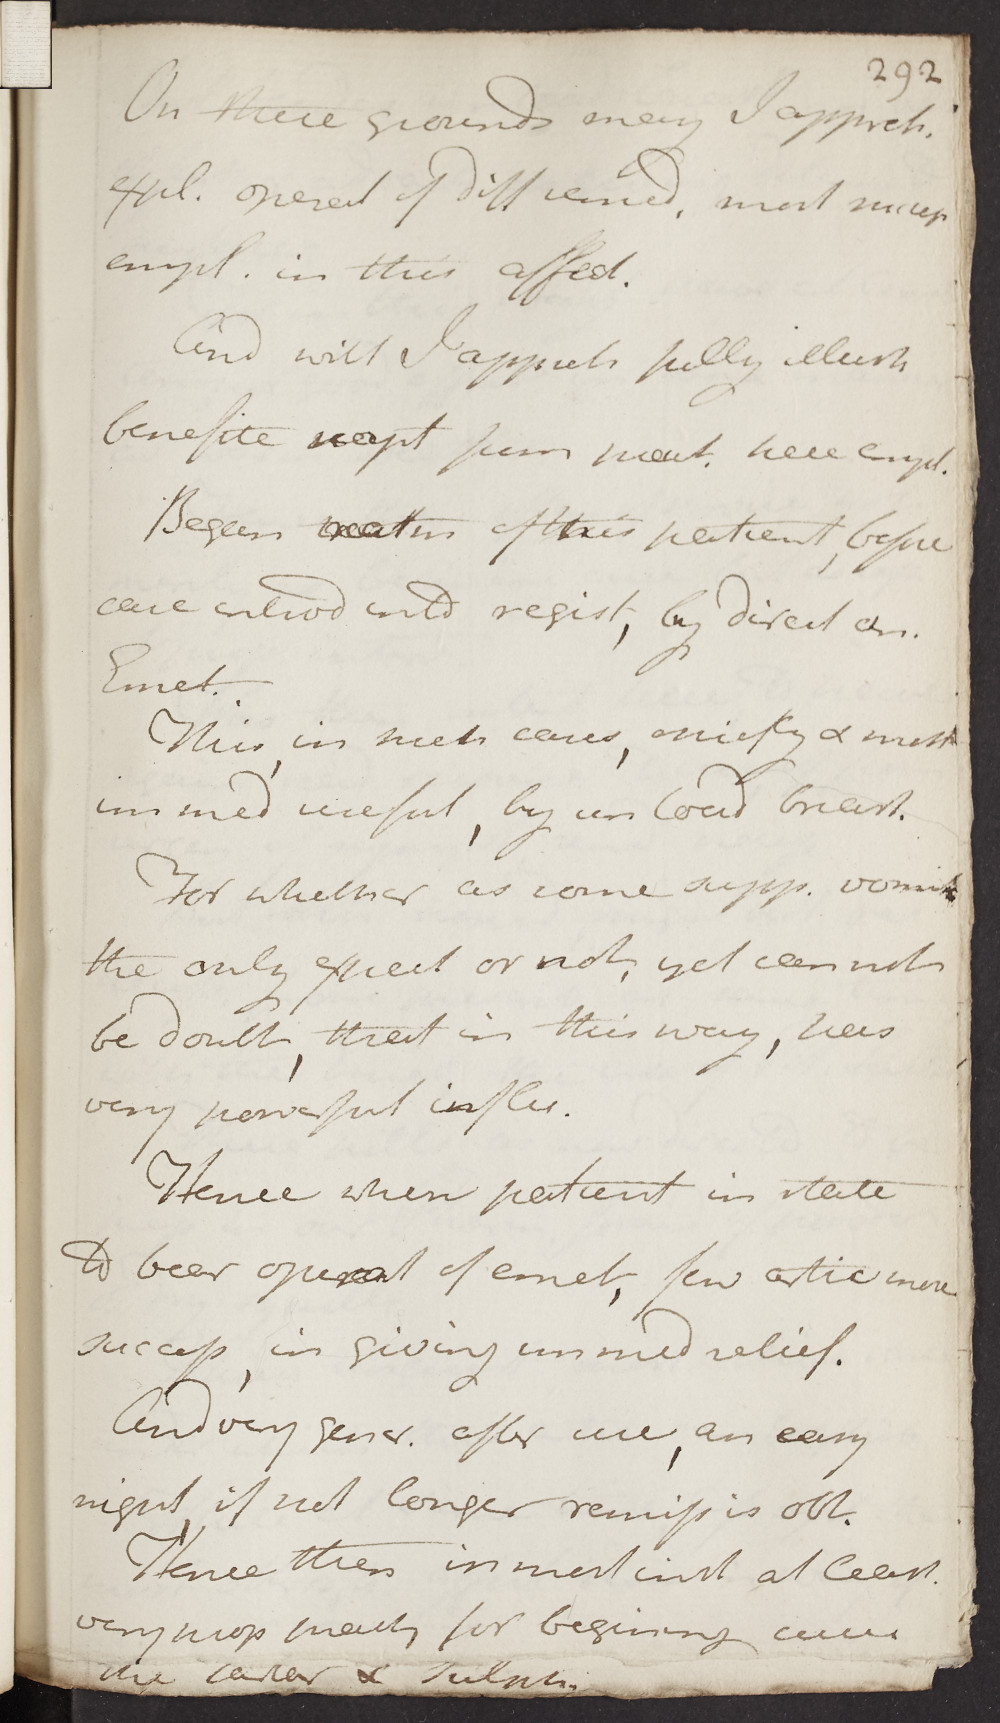 292
On these grounds may I appreh.
expl. operat of diff remed, most succesf
empl. in this affect.
And will I appreh fully illustr
benefite recept from pract. here empl.
Began treatm of this patient, before
case introd into regist, by direct an.
Emet.
This, in such cases, chiefly & most
immed useful, by unload breast.
For whether as some supp. vomit
the only expect or not, yet cannot
be doubt, that in this way, has
very powerful influ.
Hence when patient in state
to bear operat of emet, few artic more
success, in giving immed relief.
And very gener. after use, an easy
night, if not longer remiss is obt.
Hence then in most inst at least.
very prop pract, for begining cure
the tartar &